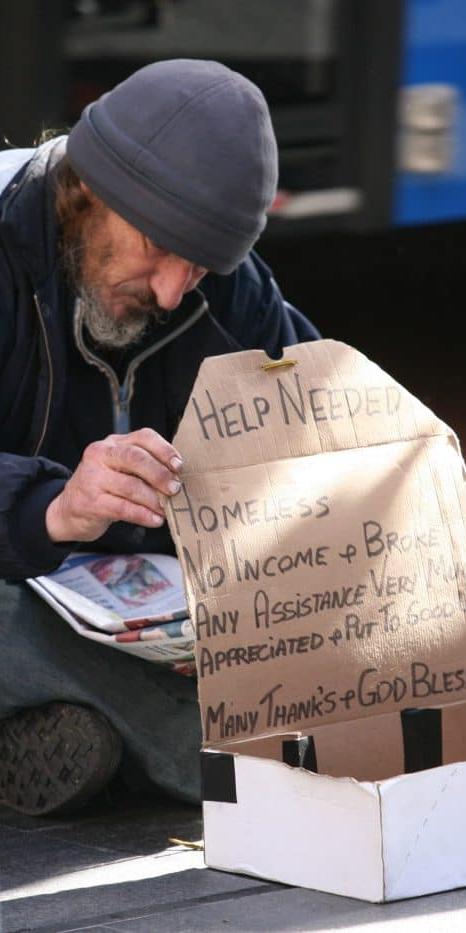 HELP NEEDED
HOMELESS
NO INCOME & BROKE
ANY ASSISTANCE VERY
APPRECIATED & PUT TO GOOD
MANY THANK'S & GOD BLES